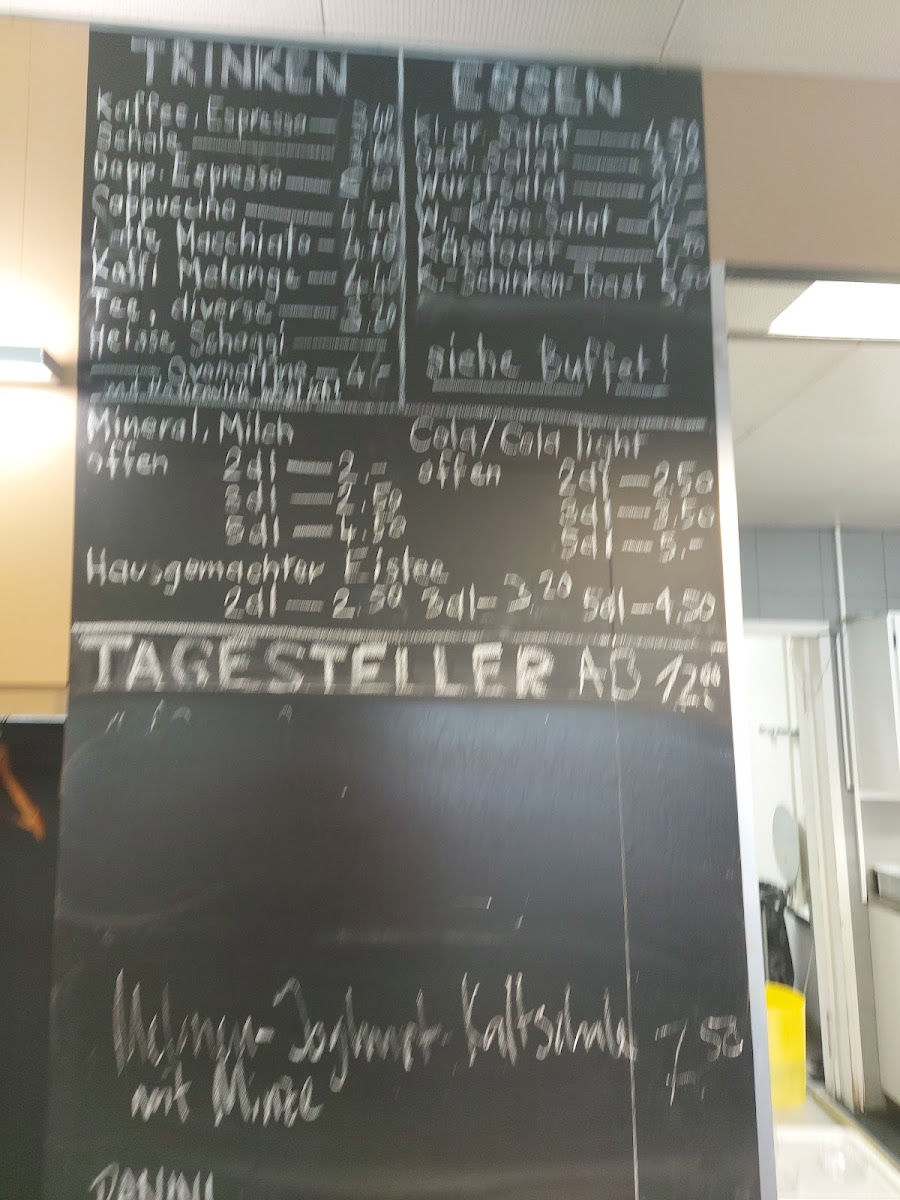 TRINKEN
Kaffee, Espresso
Schale
Dopp. Espresso
Cappuccino 4.40
Latte Macchiato
Kaffi Melange
Tee, diverse
Heisse Schoggi
Ovomaltine 4.-
ESSEN
Kl. gr. Salat 4.50
Salat
Wurstsalat
W.-Käse-Salat
Käseteller
K.-Schinken Toast
siehe Buffet!
Mineral, Milch
offen 2dl — 2.-
3dl — 2.50
5dl — 4.50
Cola/Cola light
offen 2dl — 2.50
3dl — 3.50
5dl — 5.-
Hausgemachter Eistee
2dl — 2.50 3dl — 3.20 5dl — 4.50
TAGESTELLER AB 12.00
Melonen-Joghurt-Kaltschale 7.50
mit Minze
PANINI